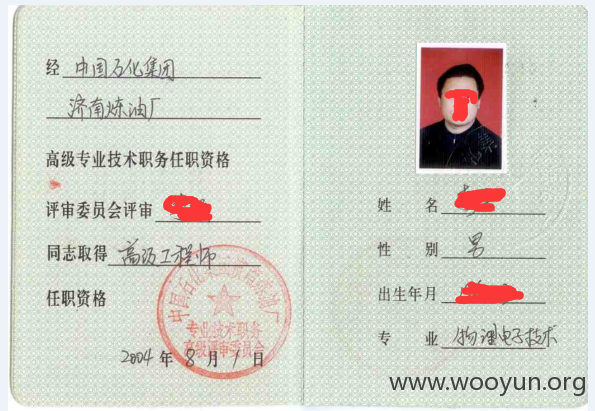 经 中国石化集团
济南炼油厂
高级专业技术职务任职资格
评审委员会评审
同志取得 高级工程师
任职资格
2004 年 8 月 1 日
专业技术职务
高级评审委员会
姓 名
性 别 男
出生年月
专 业 物理电子技术
www.wooyun.org